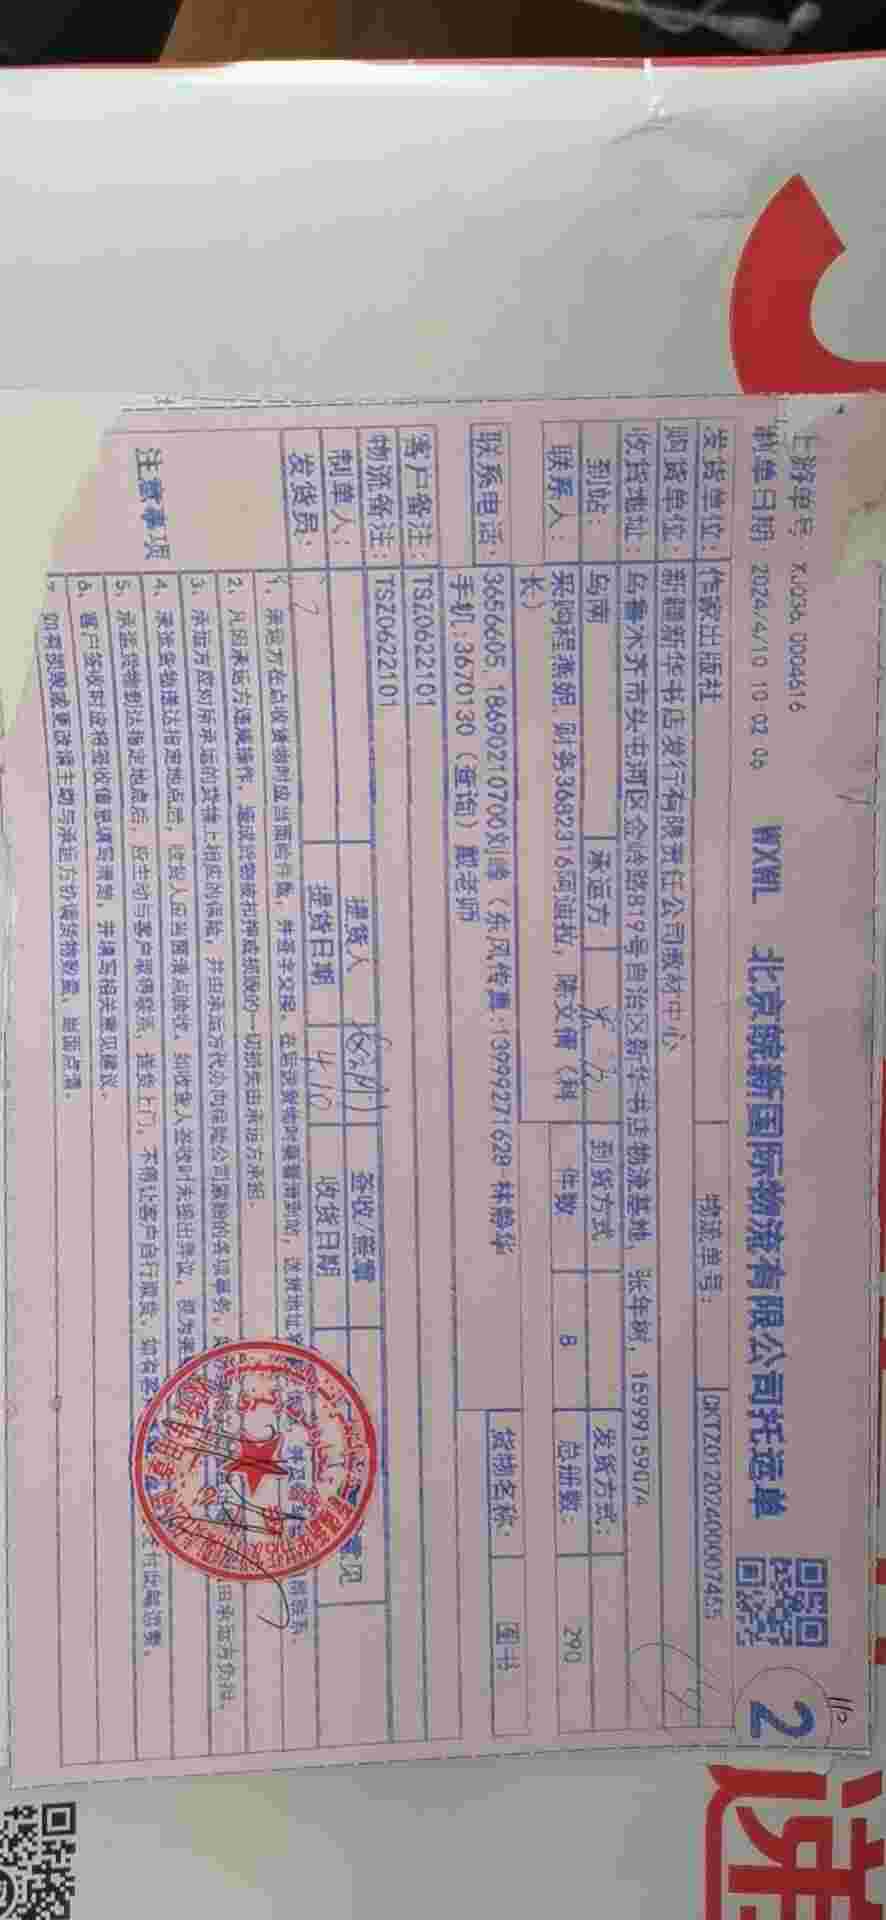 上游单号: XJ036 0004616
制单日期: 2024/4/10 10 02 06 WXWL 北京皖新国际物流有限公司托运单 2
物流单号: DKTZ01202400007455
发货单位: 作家出版社
购货单位: 新疆新华书店发行有限责任公司教材中心
收货地址: 乌鲁木齐市头屯河区金岭路819号自治区新华书店物流基地, 张年树, 15999159074
到站: 乌南 承运方 到货方式 发货方式:
联系人: 采购程燕妮, 财务3682316阿迪拉, 陈文倩（科长） 件数: 8 总册数: 290
联系电话: 3656605, 18690210700刘峰（东风传真:13999271628 林静华 手机:3670130（查询）戴老师 货物名称: 图书
客户备注: TSZ0622101
物流备注: TSZ0622101
制单人: 提货人 签收/签章 意见
发货员: 提货日期 4.10 收货日期
注意事项
1. 承运方在点收货物时应当面给件数, 并签字交接, 在后发货站时要看清到站, 送货地址
2. 凡因承运方违规操作, 造成货物被扣押或损毁的一切损失由承运方承担.
3. 承运方应对所承运的货物上相应的保险, 并由承运方代办向保险公司索赔的各项事务, 由承运方负担.
4. 承运货物送达指定地点后, 收货人应当面清点验收, 如收货人签收时未提出异议, 视为
5. 承运货物到达指定地点后, 应主动与客户取得联系, 送货上门, 不得让客户自行取货, 如有
6. 客户签收时应将签收信息填写清楚, 并填写相关意见建议.
7. 如有损毁或更改请主动与承运方协调货物数量, 当面点清.